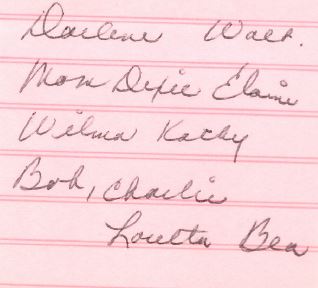 Darlene Walt.
Mom Dixie Elaine
Wilma Kathy
Bob, Charlie
Loretta Bea